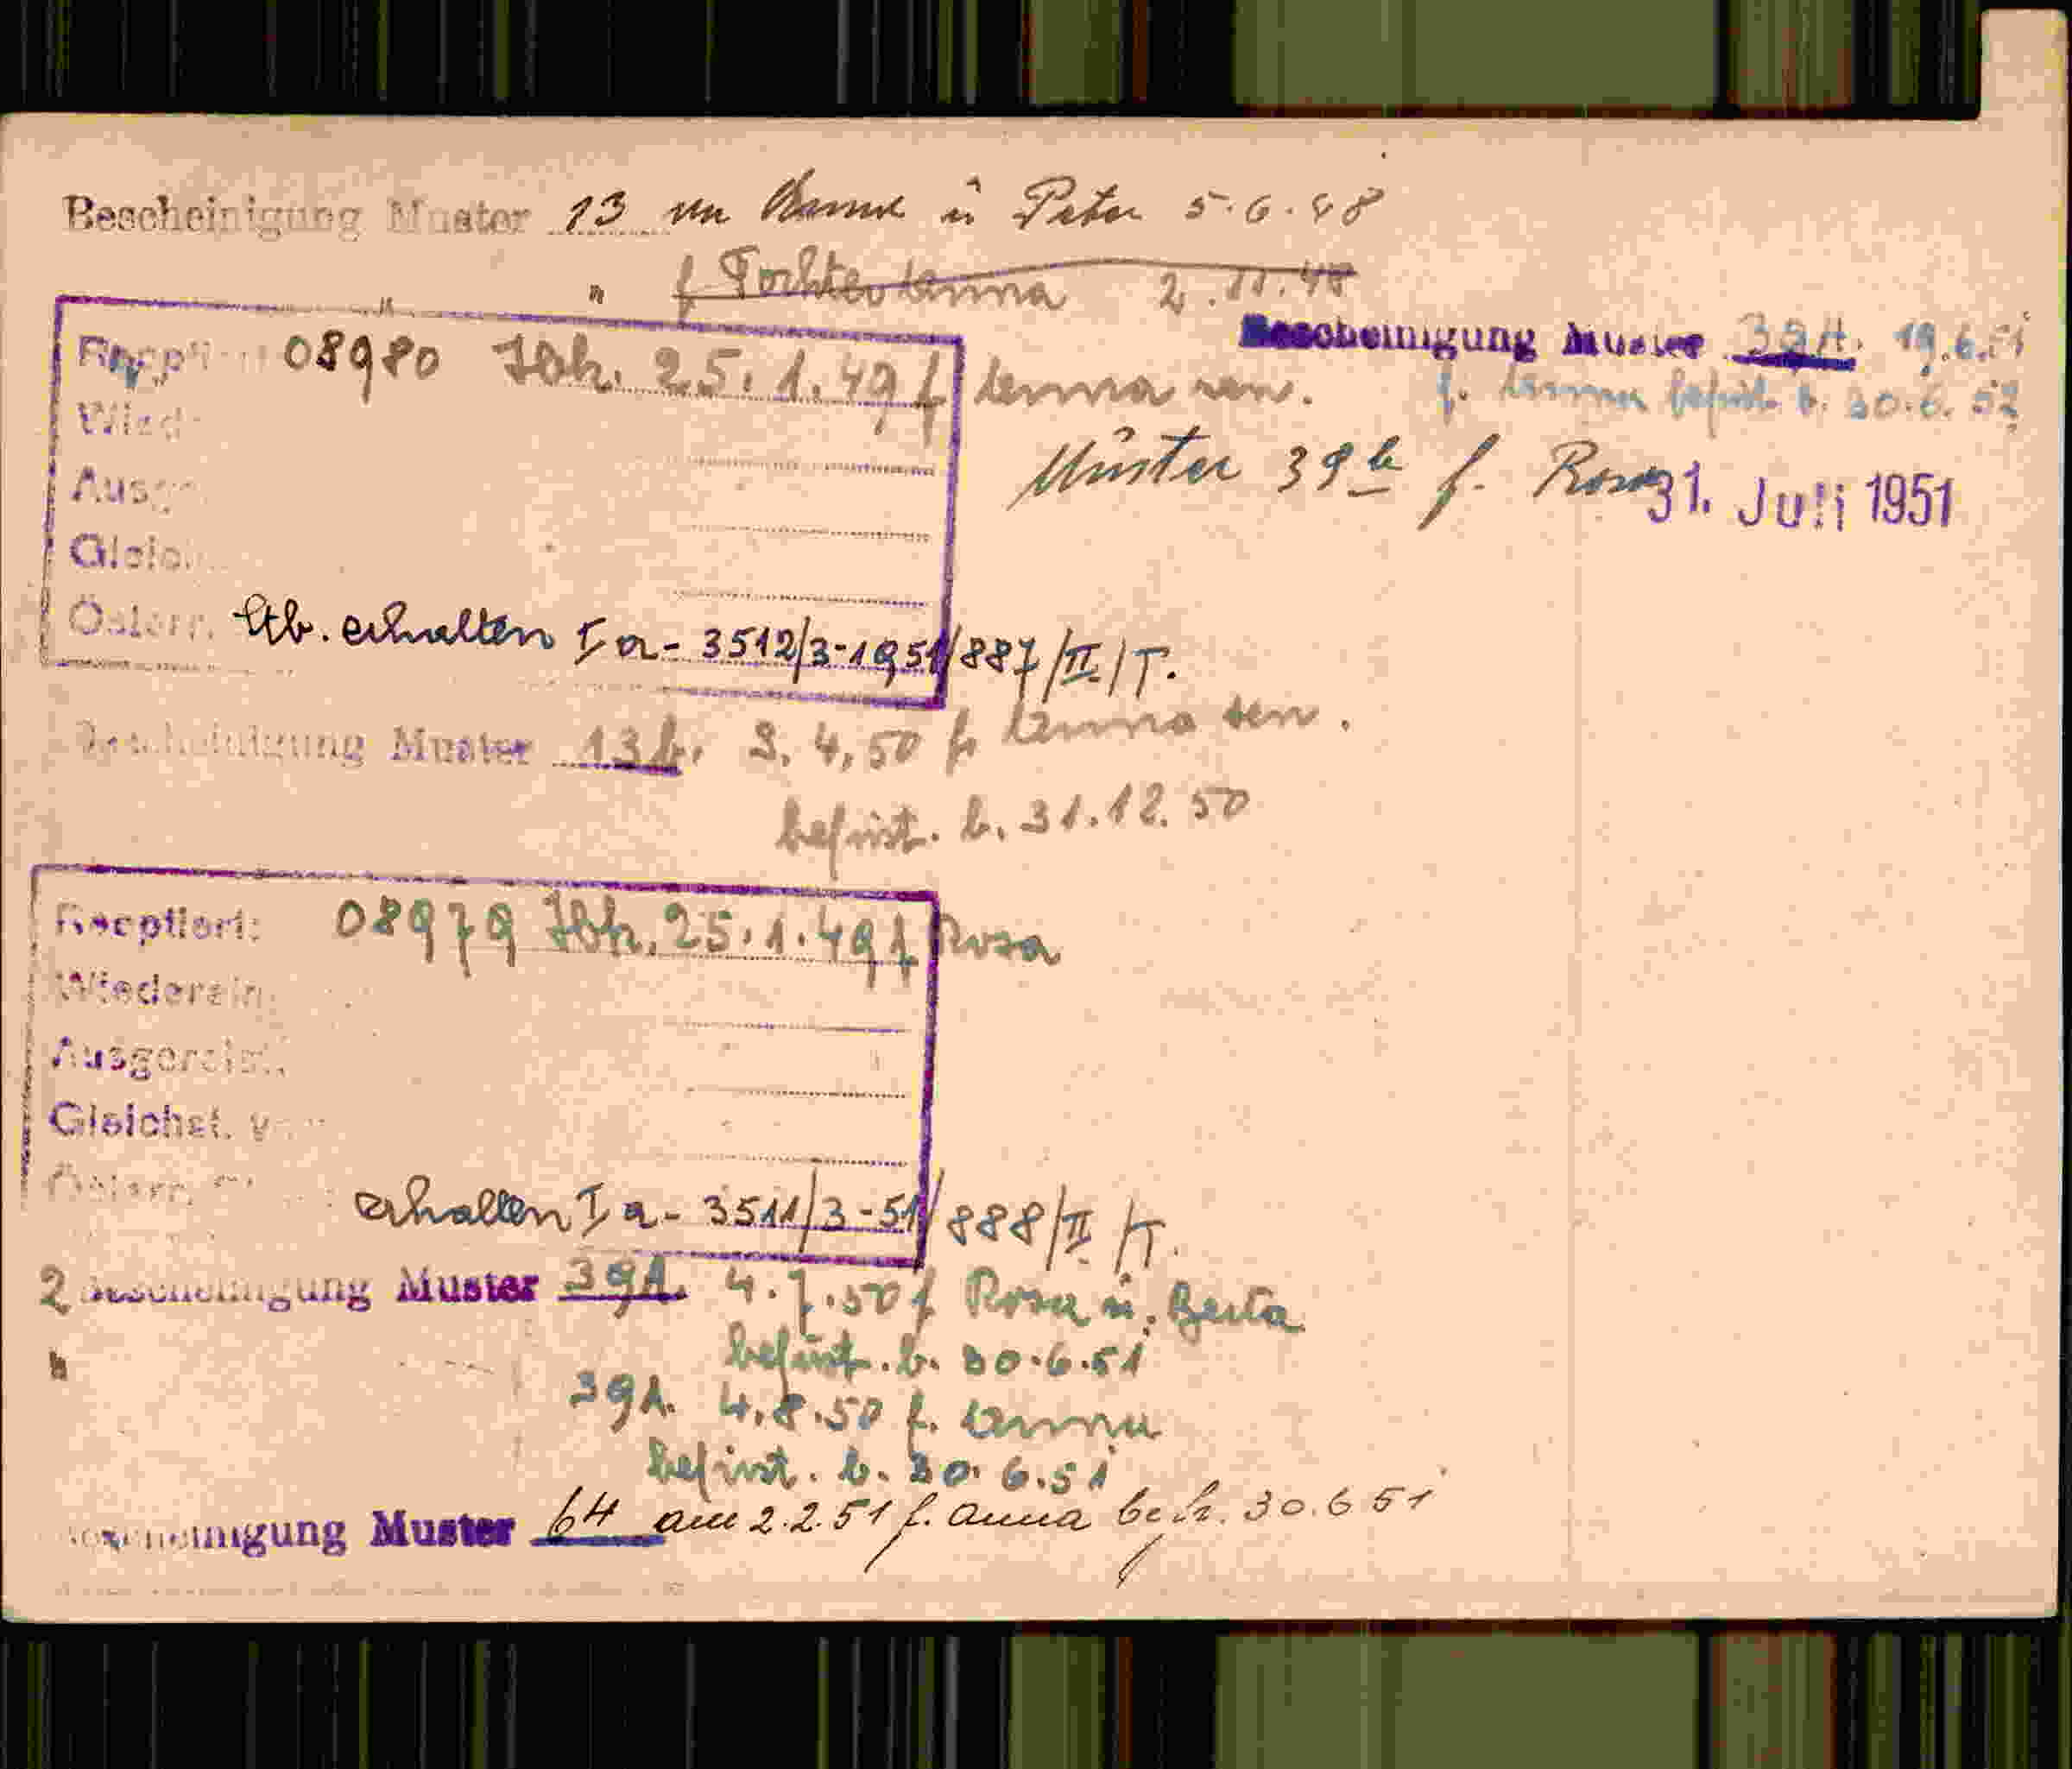 Bescheinigung Muster 13 Anna u Peter 5.6.48
" " f Tochter Anna 2.11.48
08980 Jbk. 25.1.49 f Anna sen.
Bescheinigung Muster 39A. 19.6.51
f. Anna befrist. b. 30.6.52
Muster 39b f. Rosa 31. Juli 1951
Österr. Stb. erhalten I a - 3512/3-1951/887/II/T.
Bescheinigung Muster 13b. 3.4.50 f Anna sen.
befrist. b. 31.12.50
Receptiert: 08979 Jbk. 25.1.49 f Rosa
Wiederein
Ausgereist:
Gleichst. v
Österr. erhalten I a - 3511/3-51/888/II/T.
2 Bescheinigung Muster 39A. 4.7.50 f Rosa u. Berta
befrist. b. 30.6.51
" 39A. 4.8.50 f. Anna
befrist. b. 30.6.51
Bescheinigung Muster 64 am 2.2.51 f. Anna 30.6 51